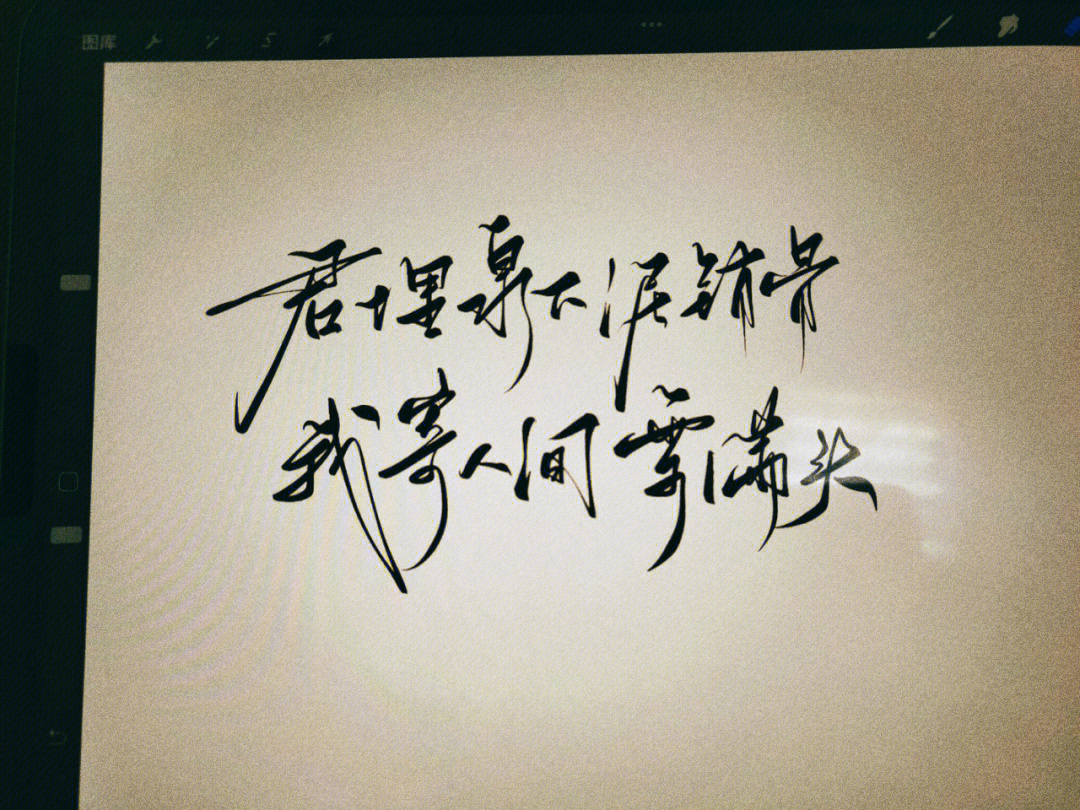 图库
君埋泉下泥销骨
我寄人间雪满头